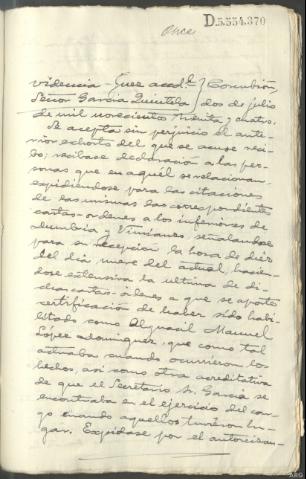 D.5.554.370
Once
videncia Juez acctal Corcubión
Señor García Quintela dos de julio
de mil novecientos treinta y cuatro.
Se acepta sin perjuicio el ante-
rior exhorto del que se acuse reci-
bo; recíbase declaración a las per-
sonas que en aquel se relacionan
expidiéndose para las citaciones
de las mismas las correspondientes
cartas-ordenes a los inferiores de
y Vimianzo señalándose
para su recepción la hora de diez
del día nueve del actual, hacién-
dose extensiva la ultima de di-
chas cartas-ordenes a que se aporte
certificación de haber sido habi-
litado como Alguacil Manuel
López Dominguez, que como tal
actuaba cuando ocurrieron los
hechos, así como otra acreditativa
de que el Secretario Sr. García se
encontraba en el ejercicio del car-
go cuando aquellos tuvieron lu-
gar. Expídase por el